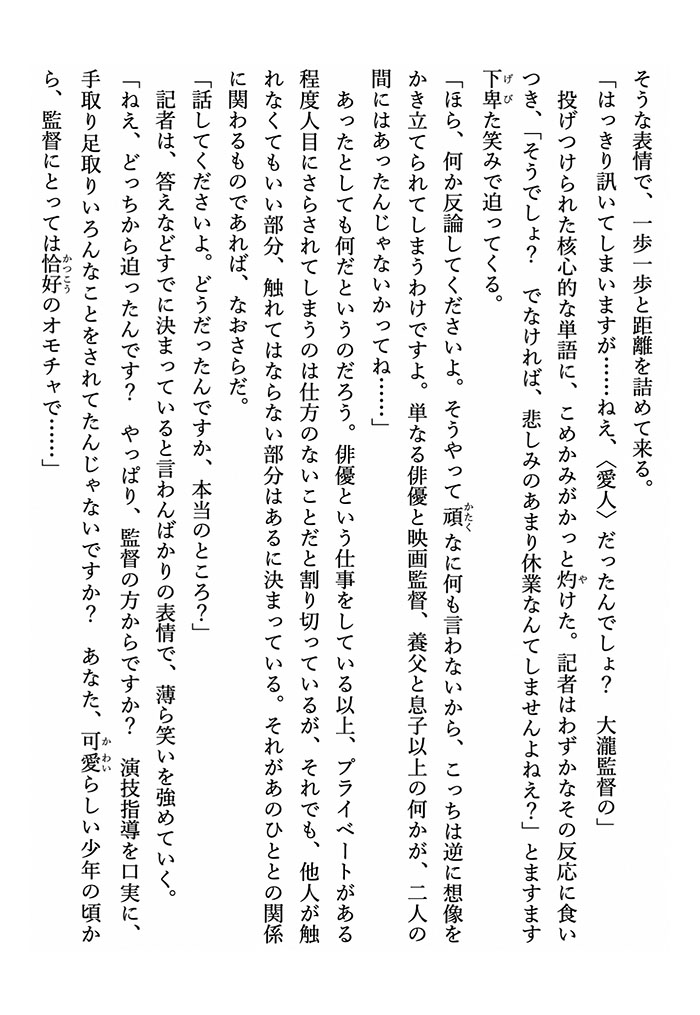 そうな表情で、一歩一歩と距離を詰めて来る。
「はっきり訊いてしまいますが……ねえ、〈愛人〉だったんでしょ?　大瀧監督の」
　投げつけられた核心的な単語に、こめかみがかっと灼けた。記者はわずかなその反応に食い
つき、「そうでしょ?　でなければ、悲しみのあまり休業なんてしませんよねえ?」とますます
下卑た笑みで迫ってくる。
「ほら、何か反論してくださいよ。そうやって頑なに何も言わないから、こっちは逆に想像を
かき立てられてしまうわけですよ。単なる俳優と映画監督、養父と息子以上の何かが、二人の
間にはあったんじゃないかってね……」
　あったとしても何だというのだろう。俳優という仕事をしている以上、プライベートがある
程度人目にさらされてしまうのは仕方のないことだと割り切っているが、それでも、他人が触
れなくてもいい部分、触れてはならない部分はあるに決まっている。それがあのひととの関係
に関わるものであれば、なおさらだ。
「話してくださいよ。どうだったんですか、本当のところ?」
　記者は、答えなどすでに決まっていると言わんばかりの表情で、薄ら笑いを強めていく。
「ねえ、どっちから迫ったんです?　やっぱり、監督の方からですか?　演技指導を口実に、
手取り足取りいろんなことをされてたんじゃないですか?　あなた、可愛らしい少年の頃か
ら、監督にとっては恰好のオモチャで……」